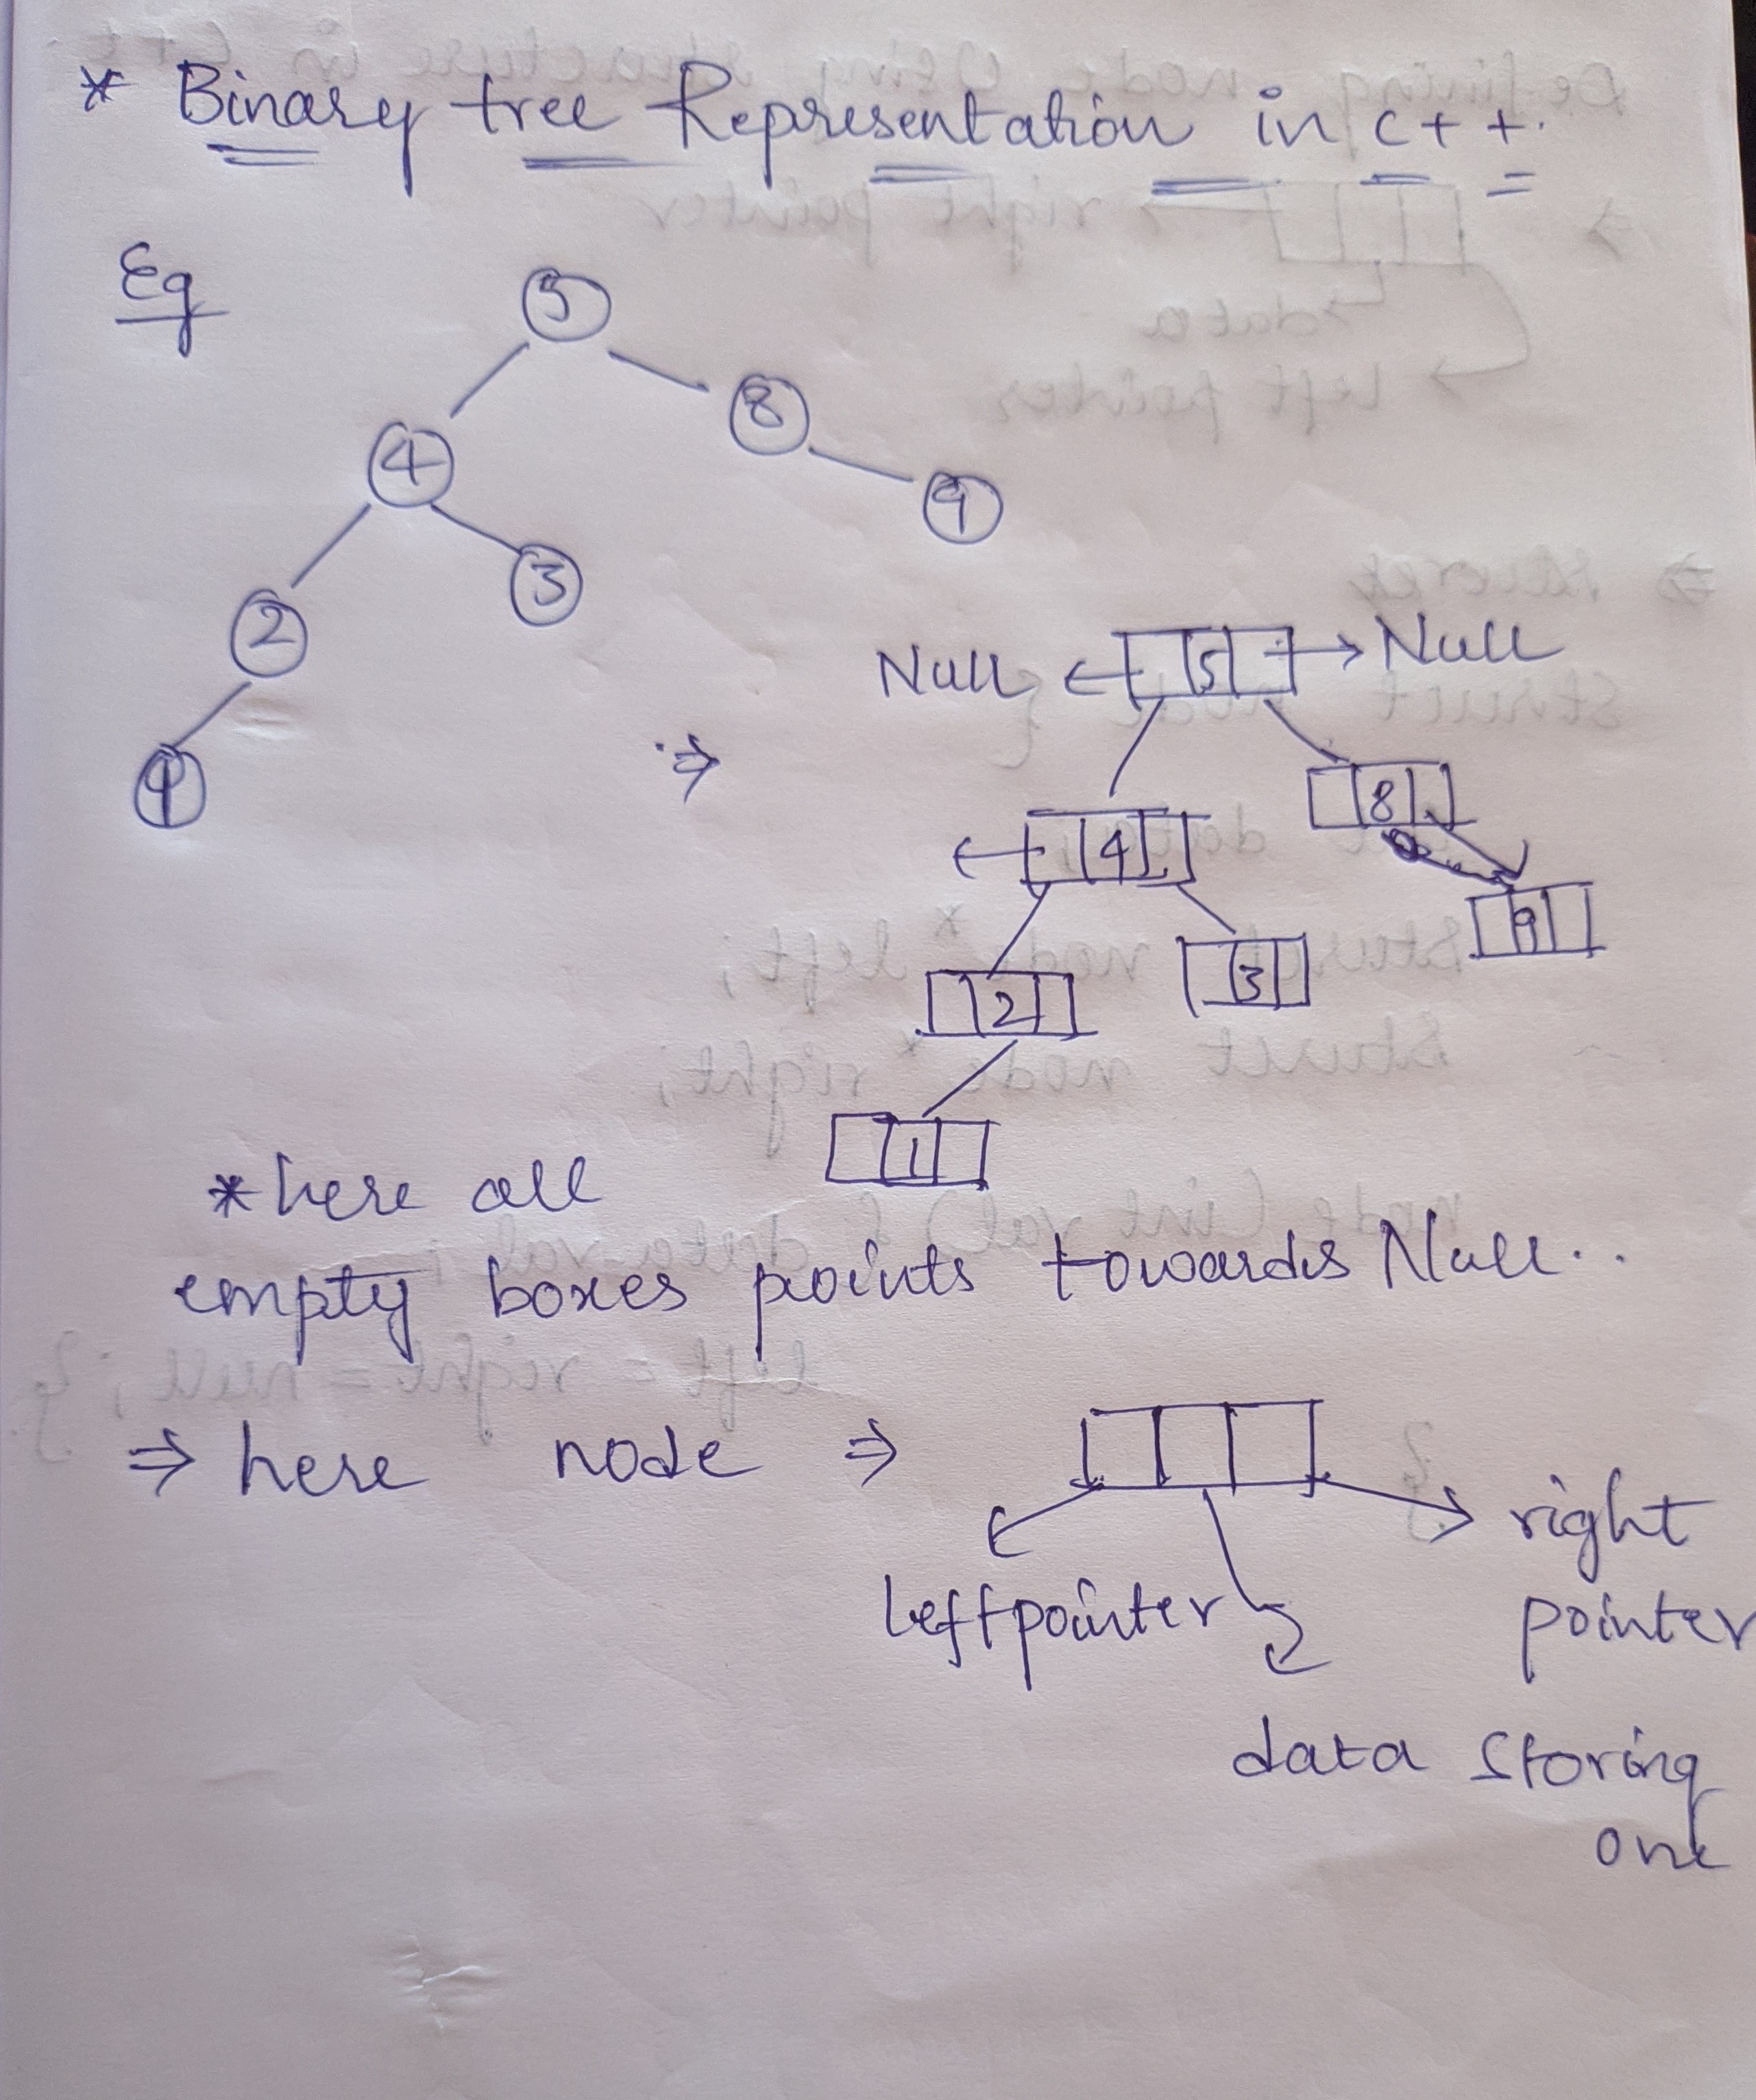 * Binary tree Representation in C++.
Eg
5
8
4
9
3
2
1
Null ← 5 → Null
⇒
8
← 4
9
2
3
1
* here all
empty boxes points towards Null..
⇒ here node ⇒
right
left pointer
pointer
data storing
one